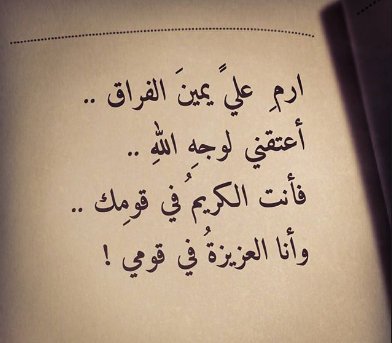 ارمِ عليًّ يمينَ الفراق ..
أعتقني لوجهِ اللهِ ..
فأنت الكريمُ في قومِك ..
وأنا العزيزةُ في قومي !